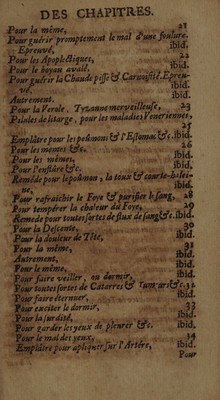 DES CHAPITRES.
Pour la même, 21
Pour guérir promptement le mal d'une foulure.
Eprouvé, ibid.
Pour les Apoplectiques, 22
Pour le boyau avalé, ibid.
Pour guérir la Chaude pisse & Carnosité. Eprou-
vé, ibid.
Autrement. ibid.
Pour la Verole. Tyzanne merveilleuse, 23
Pilules de litarge, pour les maladies Veneriennes,
25
Emplâtre pour les poûmons & l'Estomac &c. ibid.
Pour les mêmes &c. 26
Pour les mêmes, ibid.
Pour l'enflûre &c. ibid.
Remède pour le poûmon, la toux & courte-halei-
ne, ibid.
Pour rafraîchir le Foye & purifier le sang, 28
Pour tempérer la chaleur du Foye, 29
Remede pour toutes sortes de flux de sang &c. ibid.
Pour la Descente, 30
Pour la douleur de Tête, ibid.
Pour la même, 31
Autrement, ibid.
Pour le même, ibid.
Pour faire veiller, ou dormir, ibid.
Pour toutes sortes de Catarres & Tumeurs &c. 32
Pour faire éternuer, ibid.
Pour exciter le dormir, 33
Pour la surdité, ibid.
Pour garder les yeux de pleurer &c. ibid.
Pour le mal des yeux, 34
Emplâtre pour apliquer sur l'Artére, ibid.
Pour